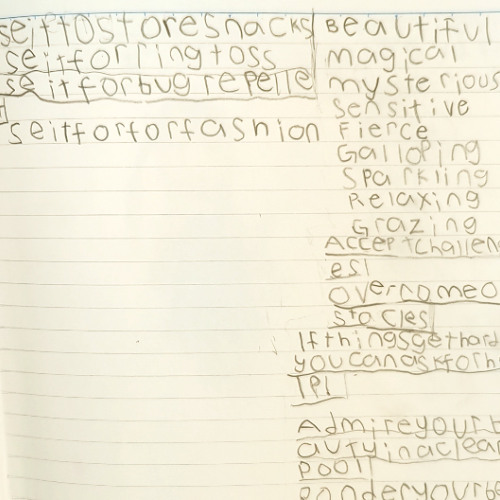 seittostoresnacks
seitforringtoss
seitforbugrepelle
seitforforfashion
Beautiful
magical
mysterious
sensitive
Fierce
Galloping
Sparkling
Relaxing
Grazing
Acceptchallen
es!
overcomeo
stocles
Ifthingsgethard
youcanaskforh
Admireyourb
autyinaclear
Pool!
ponderyourbe